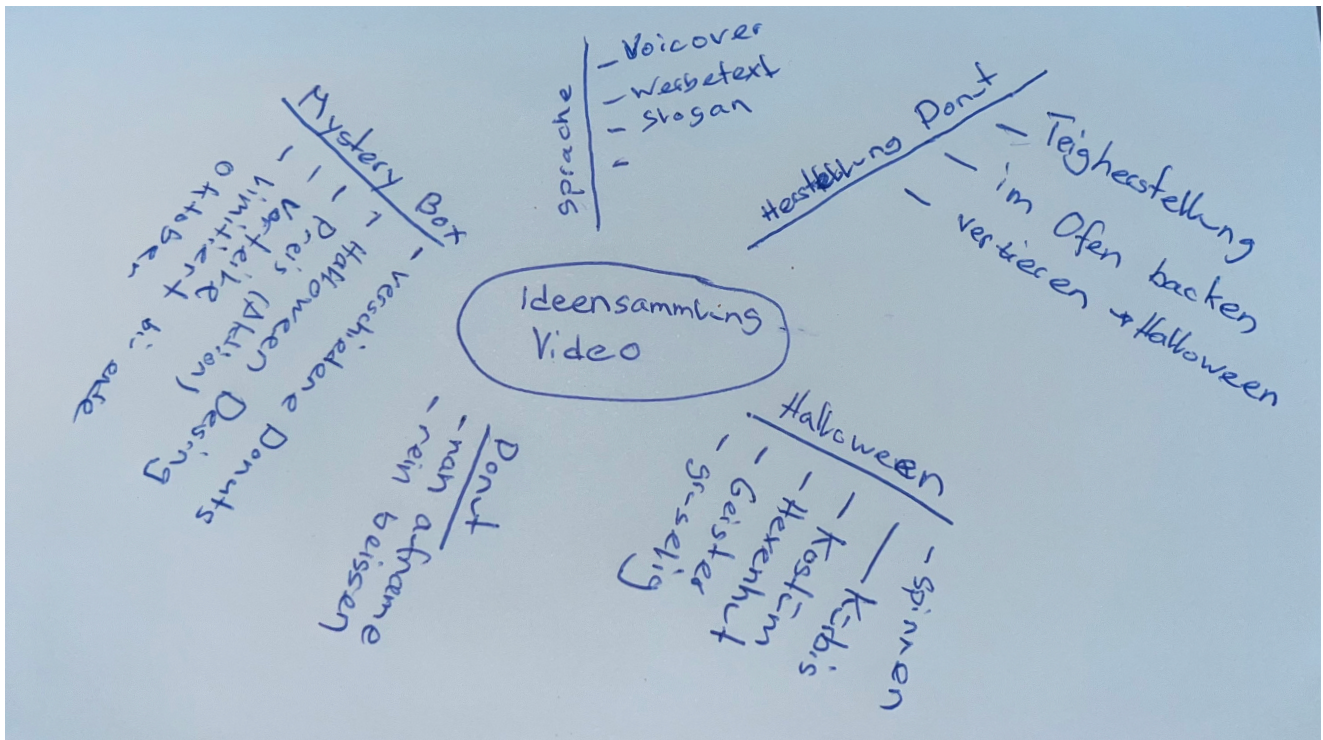 Ideensammlung
Video
Sprache
- Voicover
- Werbetext
- Slogan
-
Herstellung Donut
- Teigherstellung
- im Ofen backen
- verzieren → Halloween
Halloween
- Spinnen
- Kürbis
- Kostüm
- Hexenhut
- Geister
- gruselig
Donut
- nah aufname
- rein beissen
Mystery Box
- verschiedene Donuts
- Halloween Desing
- Preis (Aktion)
- Vorteile
- Limitiert bis ende
Oktober